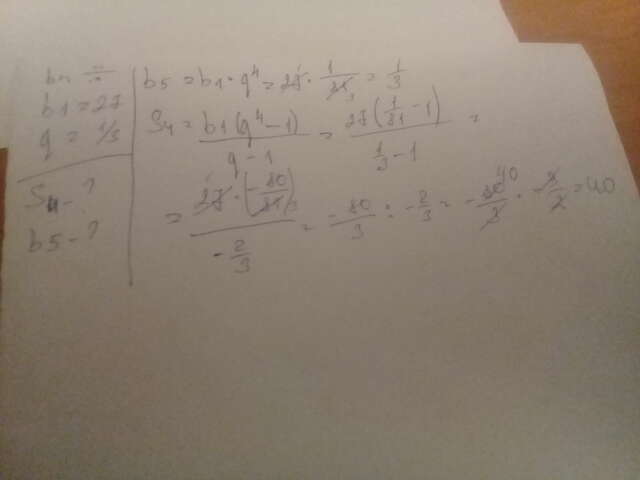 bn ÷÷
b1 = 27
q = 1/3
S4 - ?
b5 - ?
b5 = b1 · q^4 = 27 · 1/81 = 1/3
S4 = b1(q^4 - 1)/(q - 1) = 27(1/81 - 1)/(1/3 - 1) =
= 27 · (-80/81)/(-2/3) = -80/3 : -2/3 = -80/3 · -3/2 = 40